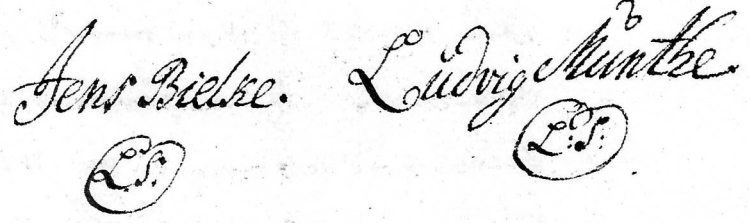 Jens Bielke. Ludvig Munthe.
L.S. L:S: